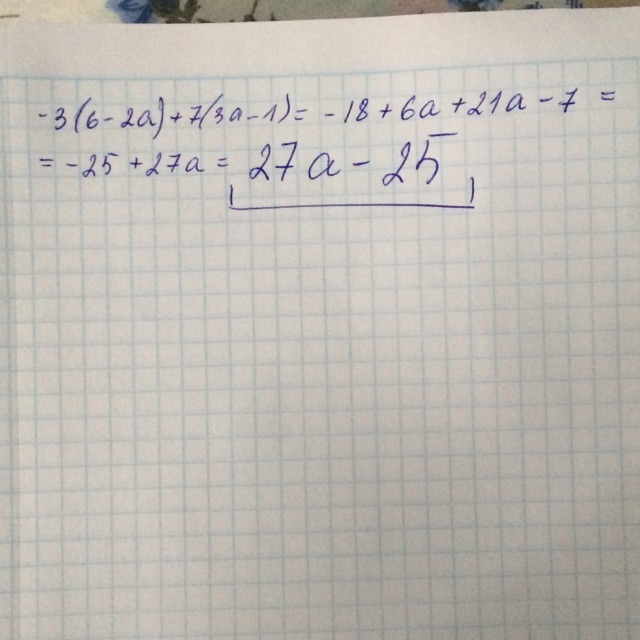 -3(6-2a)+7(3a-1)= -18+6a+21a-7 =
= -25+27a = 27a-25